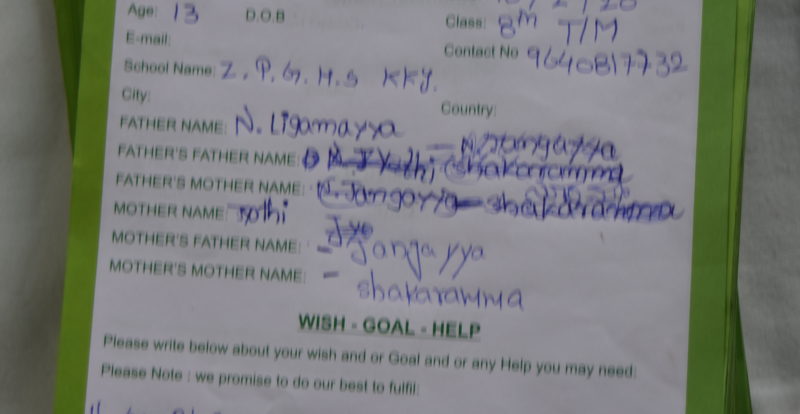 Age: 13 D.O.B
Class: 8th T/M
E-mail:
Contact No 9640817732
School Name: Z.P.G.H.S KKY.
City:
Country:
FATHER NAME: N. Ligamayya
FATHER'S FATHER NAME: N. Jangayya
shakaramma
FATHER'S MOTHER NAME: N. Jangayya shakaramma
MOTHER NAME: Jothi
MOTHER'S FATHER NAME: - Jangayya
MOTHER'S MOTHER NAME: - shakaramma
WISH - GOAL - HELP
Please write below about your wish and or Goal and or any Help you may need:
Please Note : we promise to do our best to fulfil: